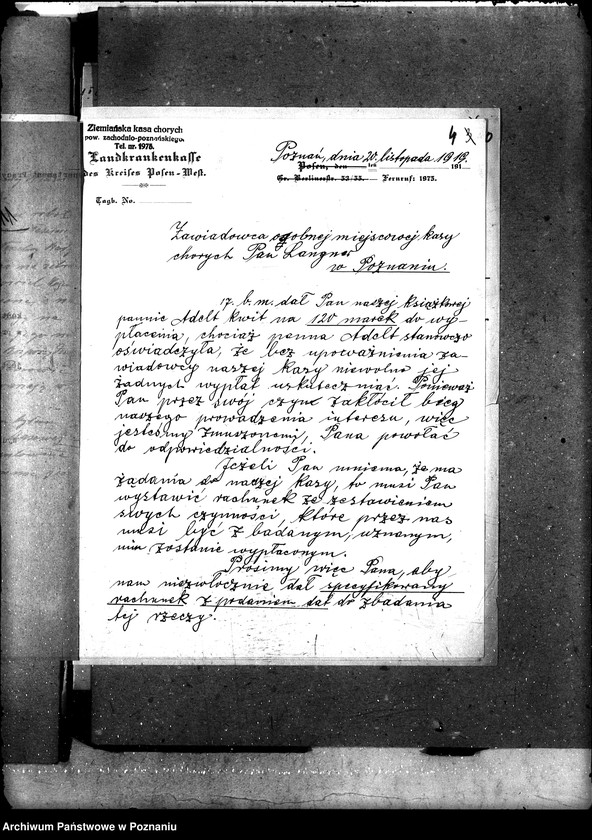 Ziemiańska kasa chorych
pow. zachodnio-poznańskiego.
Tel. nr. 1978.
Landkrankenkasse
des Kreises Posen-West.
Tagb. No.
4
Poznań, dnia 20. listopada 1919.
Posen, den ten 191
Gr. Berlinerstr. 52/53. — Fernruf: 1975.
Zawiadowca ogóbnej miejscowej kasy
chorych Pan Langner
w Poznaniu.
17. b. m. dał Pan naszej książkowej
pannie Adelt kwit na 120 marek do wy-
płacenia, chociaż panna Adelt stanowczo
oświadczyła, że bez upoważnienia za-
wiadowcy naszej kasy niewolno jej
żadnych wypłat uskuteczniać. Ponieważ
Pan przez swój czyn zakłócił bieg
naszego prowadzenia interesu, więc
jesteśmy zmuszonemi, Pana powołać
do odpowiedzialności.
Jeżeli Pan mniema, że ma
żądania do naszej kasy, to musi Pan
wystawić rachunek ze zestawieniem
swych czynności, które przez nas
musi być z badanym, uznanym,
nim zostanie wypłaconym.
Prosimy więc Pana, aby
nam niezwłocznie dał specyfikowany
rachunek z podaniem dat do zbadania
tej rzeczy.
Archiwum Państwowe w Poznaniu